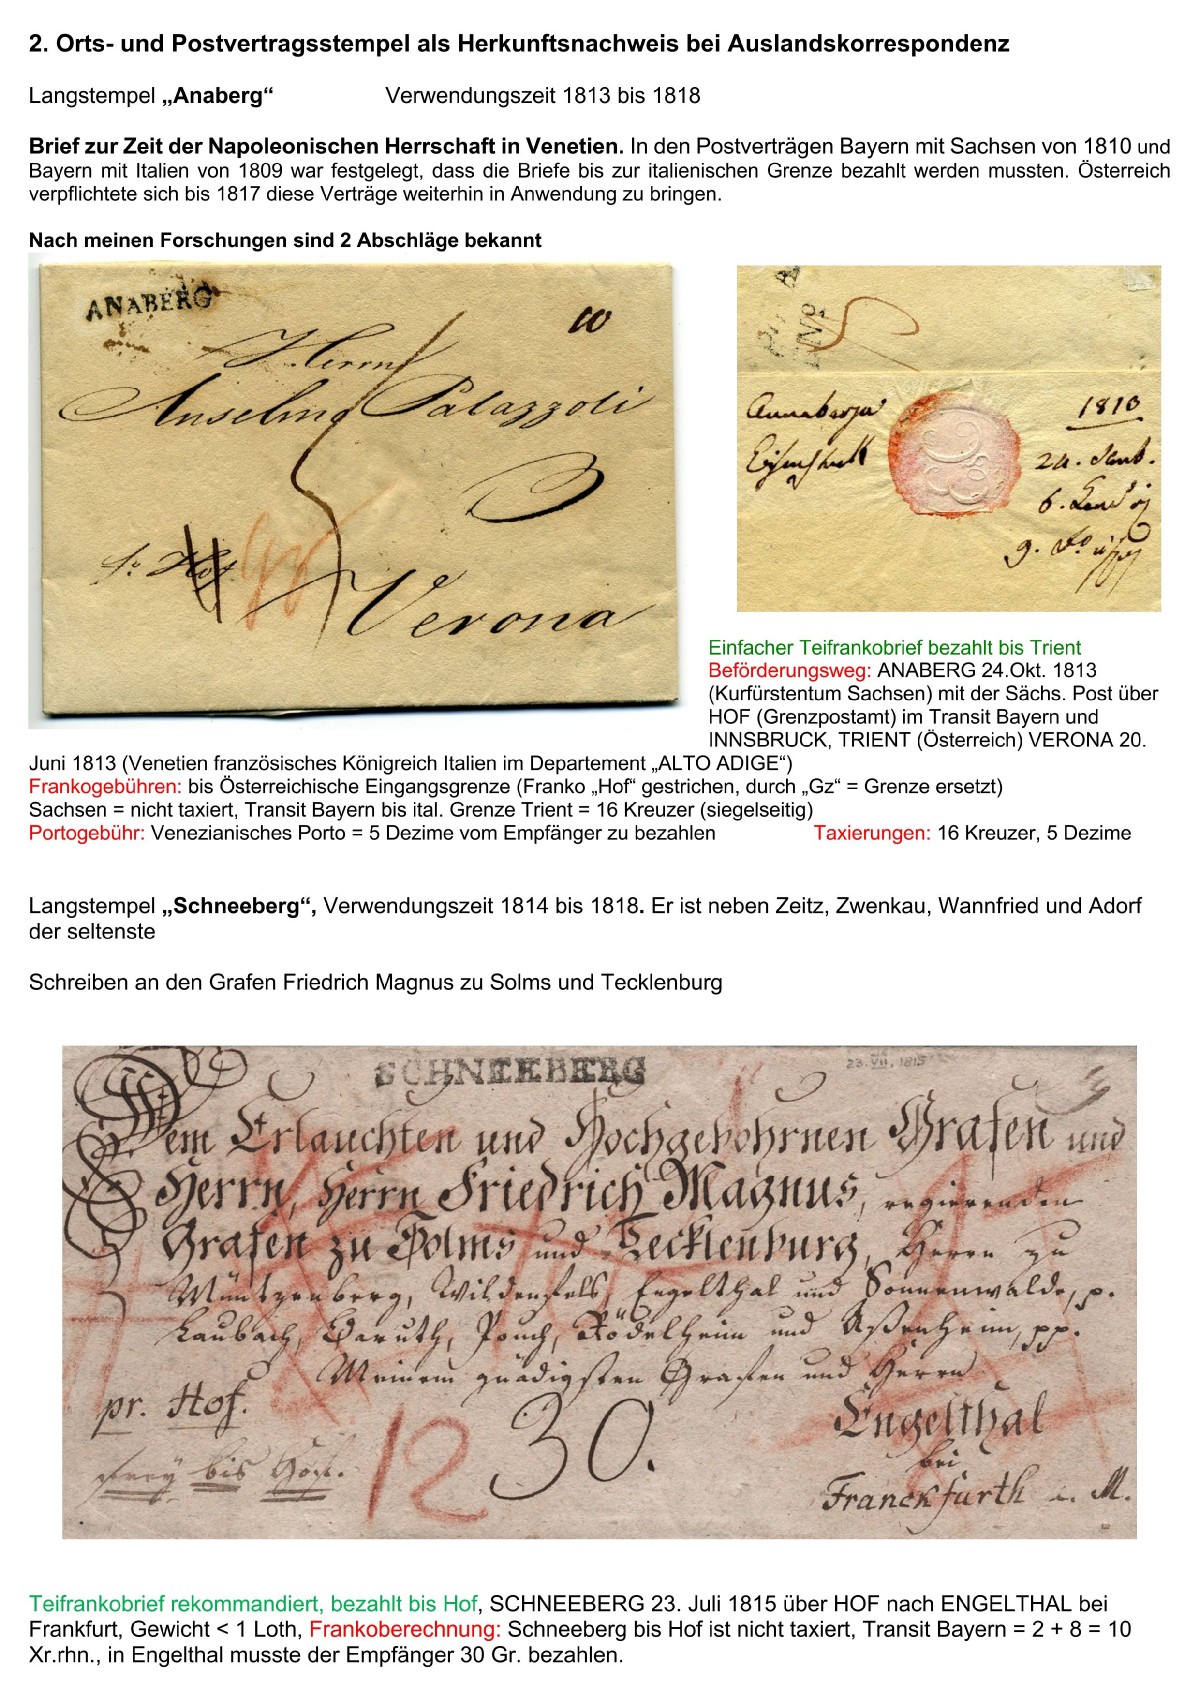 2. Orts- und Postvertragsstempel als Herkunftsnachweis bei Auslandskorrespondenz
Langstempel „Anaberg“ Verwendungszeit 1813 bis 1818
Brief zur Zeit der Napoleonischen Herrschaft in Venetien. In den Postverträgen Bayern mit Sachsen von 1810 und
Bayern mit Italien von 1809 war festgelegt, dass die Briefe bis zur italienischen Grenze bezahlt werden mussten. Österreich
verpflichtete sich bis 1817 diese Verträge weiterhin in Anwendung zu bringen.
Nach meinen Forschungen sind 2 Abschläge bekannt
ANABERG
Herrn
Anselmo Palazzoli
po Hof
Gz
Verona
Annaberga
1810
Einfacher Teifrankobrief bezahlt bis Trient
Beförderungsweg: ANABERG 24.Okt. 1813
(Kurfürstentum Sachsen) mit der Sächs. Post über
HOF (Grenzpostamt) im Transit Bayern und
INNSBRUCK, TRIENT (Österreich) VERONA 20.
Juni 1813 (Venetien französisches Königreich Italien im Departement „ALTO ADIGE“)
Frankogebühren: bis Österreichische Eingangsgrenze (Franko „Hof“ gestrichen, durch „Gz“ = Grenze ersetzt)
Sachsen = nicht taxiert, Transit Bayern bis ital. Grenze Trient = 16 Kreuzer (siegelseitig)
Portogebühr: Venezianisches Porto = 5 Dezime vom Empfänger zu bezahlen Taxierungen: 16 Kreuzer, 5 Dezime
Langstempel „Schneeberg“, Verwendungszeit 1814 bis 1818. Er ist neben Zeitz, Zwenkau, Wannfried und Adorf
der seltenste
Schreiben an den Grafen Friedrich Magnus zu Solms und Tecklenburg
SCHNEEBERG 23. VII. 1815
Dem Erlauchten und Hochgebohrnen Grafen und
Herrn, Herrn Friedrich Magnus, regierenden
Grafen zu Solms und Tecklenburg, Herrn zu
Müntzenberg, Wildenfels, Engelthal und Sonnenwalde, p.
Laubach, Baruth, Pouch, Rödelheim und Aßenheim, pp.
Meinem gnädigsten Grafen und Herrn
pr. Hof.
Engelthal
bei
frey bis Hof.
12 30.
Franckfurth a. M.
Teifrankobrief rekommandiert, bezahlt bis Hof, SCHNEEBERG 23. Juli 1815 über HOF nach ENGELTHAL bei
Frankfurt, Gewicht < 1 Loth, Frankoberechnung: Schneeberg bis Hof ist nicht taxiert, Transit Bayern = 2 + 8 = 10
Xr.rhn., in Engelthal musste der Empfänger 30 Gr. bezahlen.